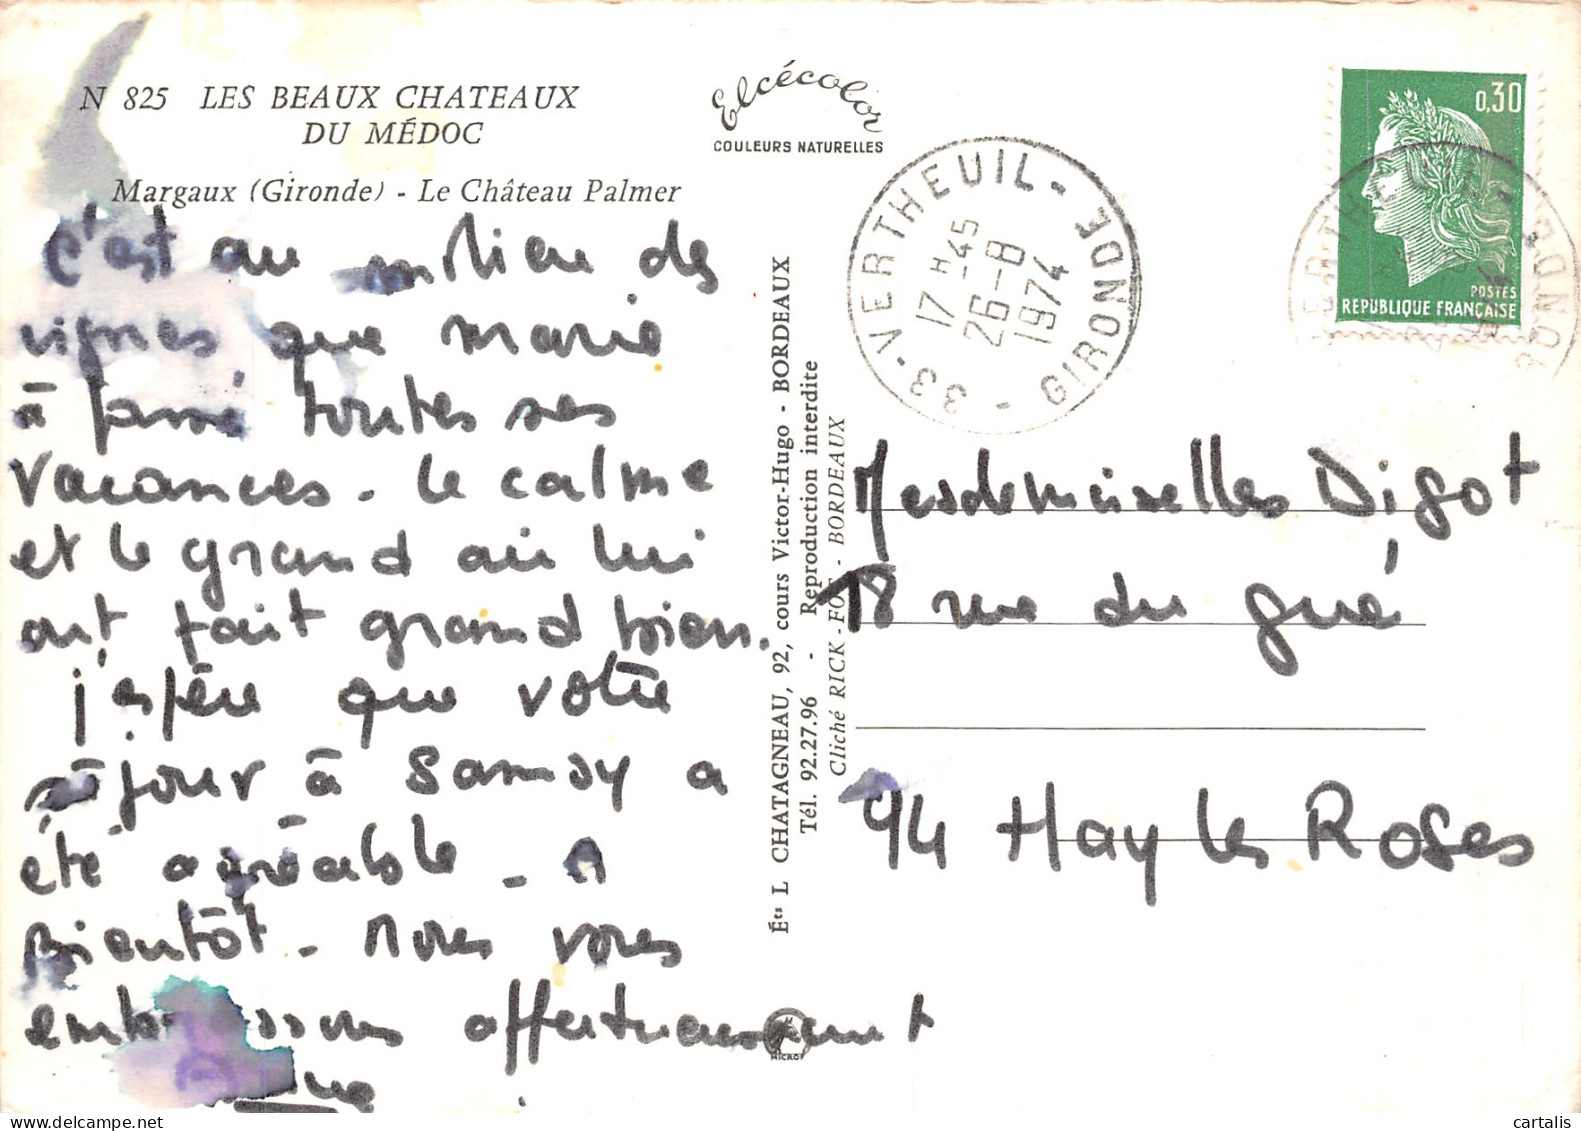 N 825 LES BEAUX CHATEAUX
DU MÉDOC
Margaux (Gironde) - Le Château Palmer
c'est au milieu des
vignes que marie
à passé toutes ses
vacances. le calme
et le grand air lui
ont fait grand bien.
j'espère que votre
séjour à Samoy a
été agréable - A
Bientôt - nous vous
embrassons affectueusement
Elcécolor
COULEURS NATURELLES
Éts L CHATAGNEAU, 92, cours Victor-Hugo - BORDEAUX
Tél. 92.27.96 - Reproduction interdite
Cliché RICK - FOT - BORDEAUX
MICRO
33 - VERTHEUIL - GIRONDE -
17 H -45
26-8
1974
0,30
POSTES
REPUBLIQUE FRANÇAISE
Mesdemoiselles Digot
18 rue du gué
94 Hay les Roses
cartalis